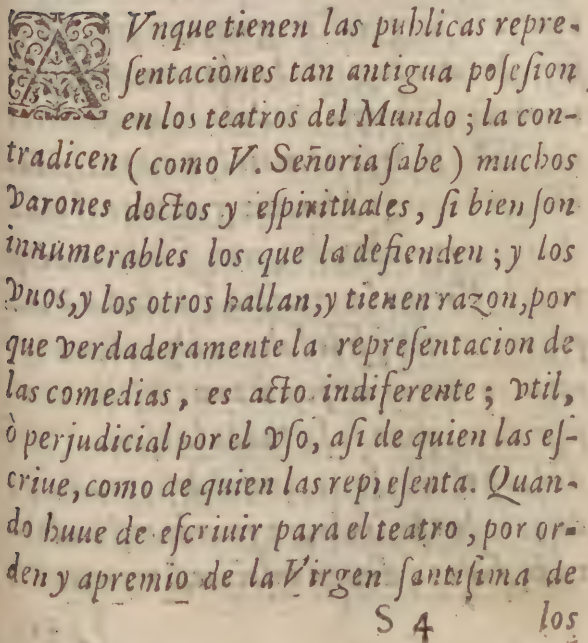 AVnque tienen las publicas repre-
ſentaciònes tan antigua poſeſion
en los teatros del Mundo ; la con-
tradicen ( como V. Señoria ſabe ) muchos
varones doctos y eſpirituales, ſi bien ſon
innumerables los que la defienden ; y los
vnos, y los otros hallan, y tienen razon, por
que verdaderamente la repreſentacion de
las comedias, es acto indiferente ; vtil,
ò perjudicial por el vſo, aſi de quien las eſ-
criue, como de quien las repreſenta. Quan-
do huue de eſcriuir para el teatro , por or-
den y apremio de la Virgen ſantiſima de
S 4 los